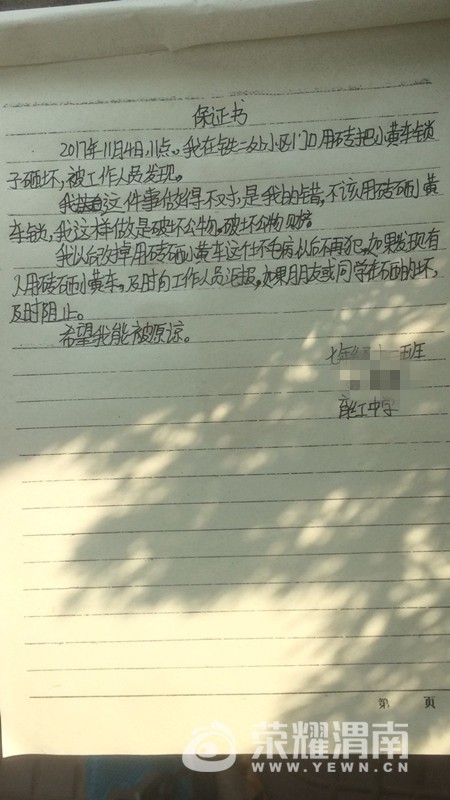 保证书
2017年11月4日,11点。我在铁二处小区门口用砖把小黄车锁
子砸坏,被工作人员发现。
我这件事做得不对,是我的错,不该用砖砸小黄
车锁,我这样做是破坏公物。破坏公物可耻。
我以后改掉用砖砸小黄车这个坏毛病以后不再犯,如果发现有
人用砖砸小黄车,及时向工作人员汇报,如果朋友或同学在砸的坏,
及时阻止。
希望我能被原谅。
七年级十一班
中学
第 页
荣耀渭南
WWW.YEWN.CN